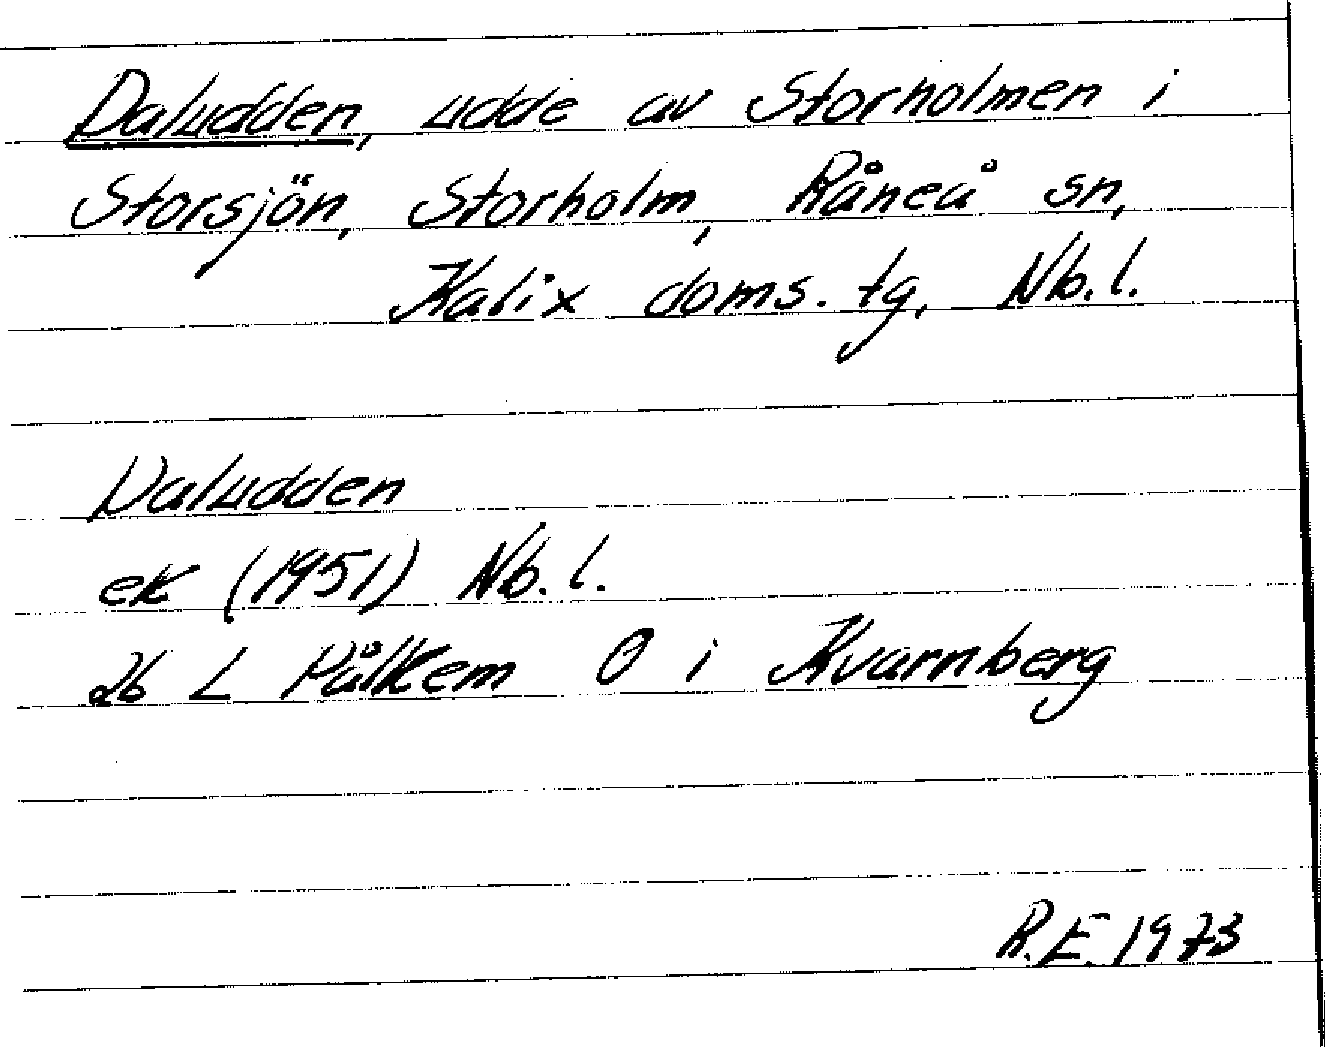 Daludden, udde av Storholmen i
Storsjön, Storholm, Råneå sn,
Kalix doms. tg, Nb. l.
Daludden
ek (1951) Nb. l.
26 L Pålkem O i Kvarnberg
R.E. 1973